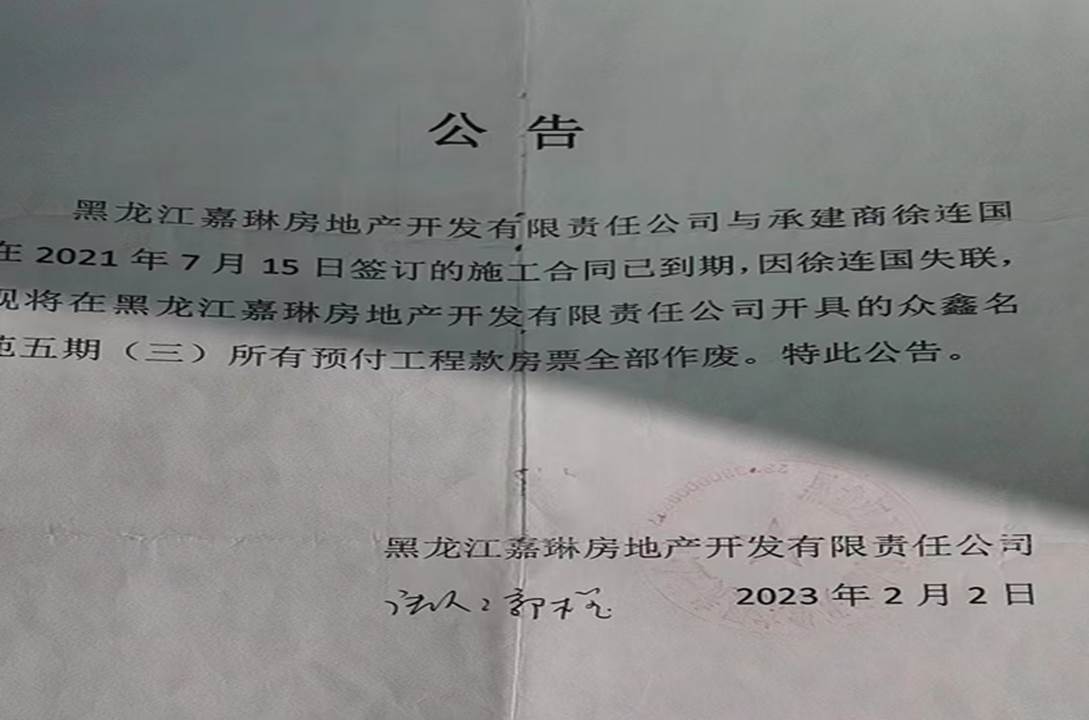 公告
黑龙江嘉琳房地产开发有限责任公司与承建商徐连国
在2021年7月15日签订的施工合同已到期，因徐连国失联，
现将在黑龙江嘉琳房地产开发有限责任公司开具的众鑫名
苑五期（三）所有预付工程款房票全部作废。特此公告。
黑龙江嘉琳房地产开发有限责任公司
法人：郭
2023年2月2日